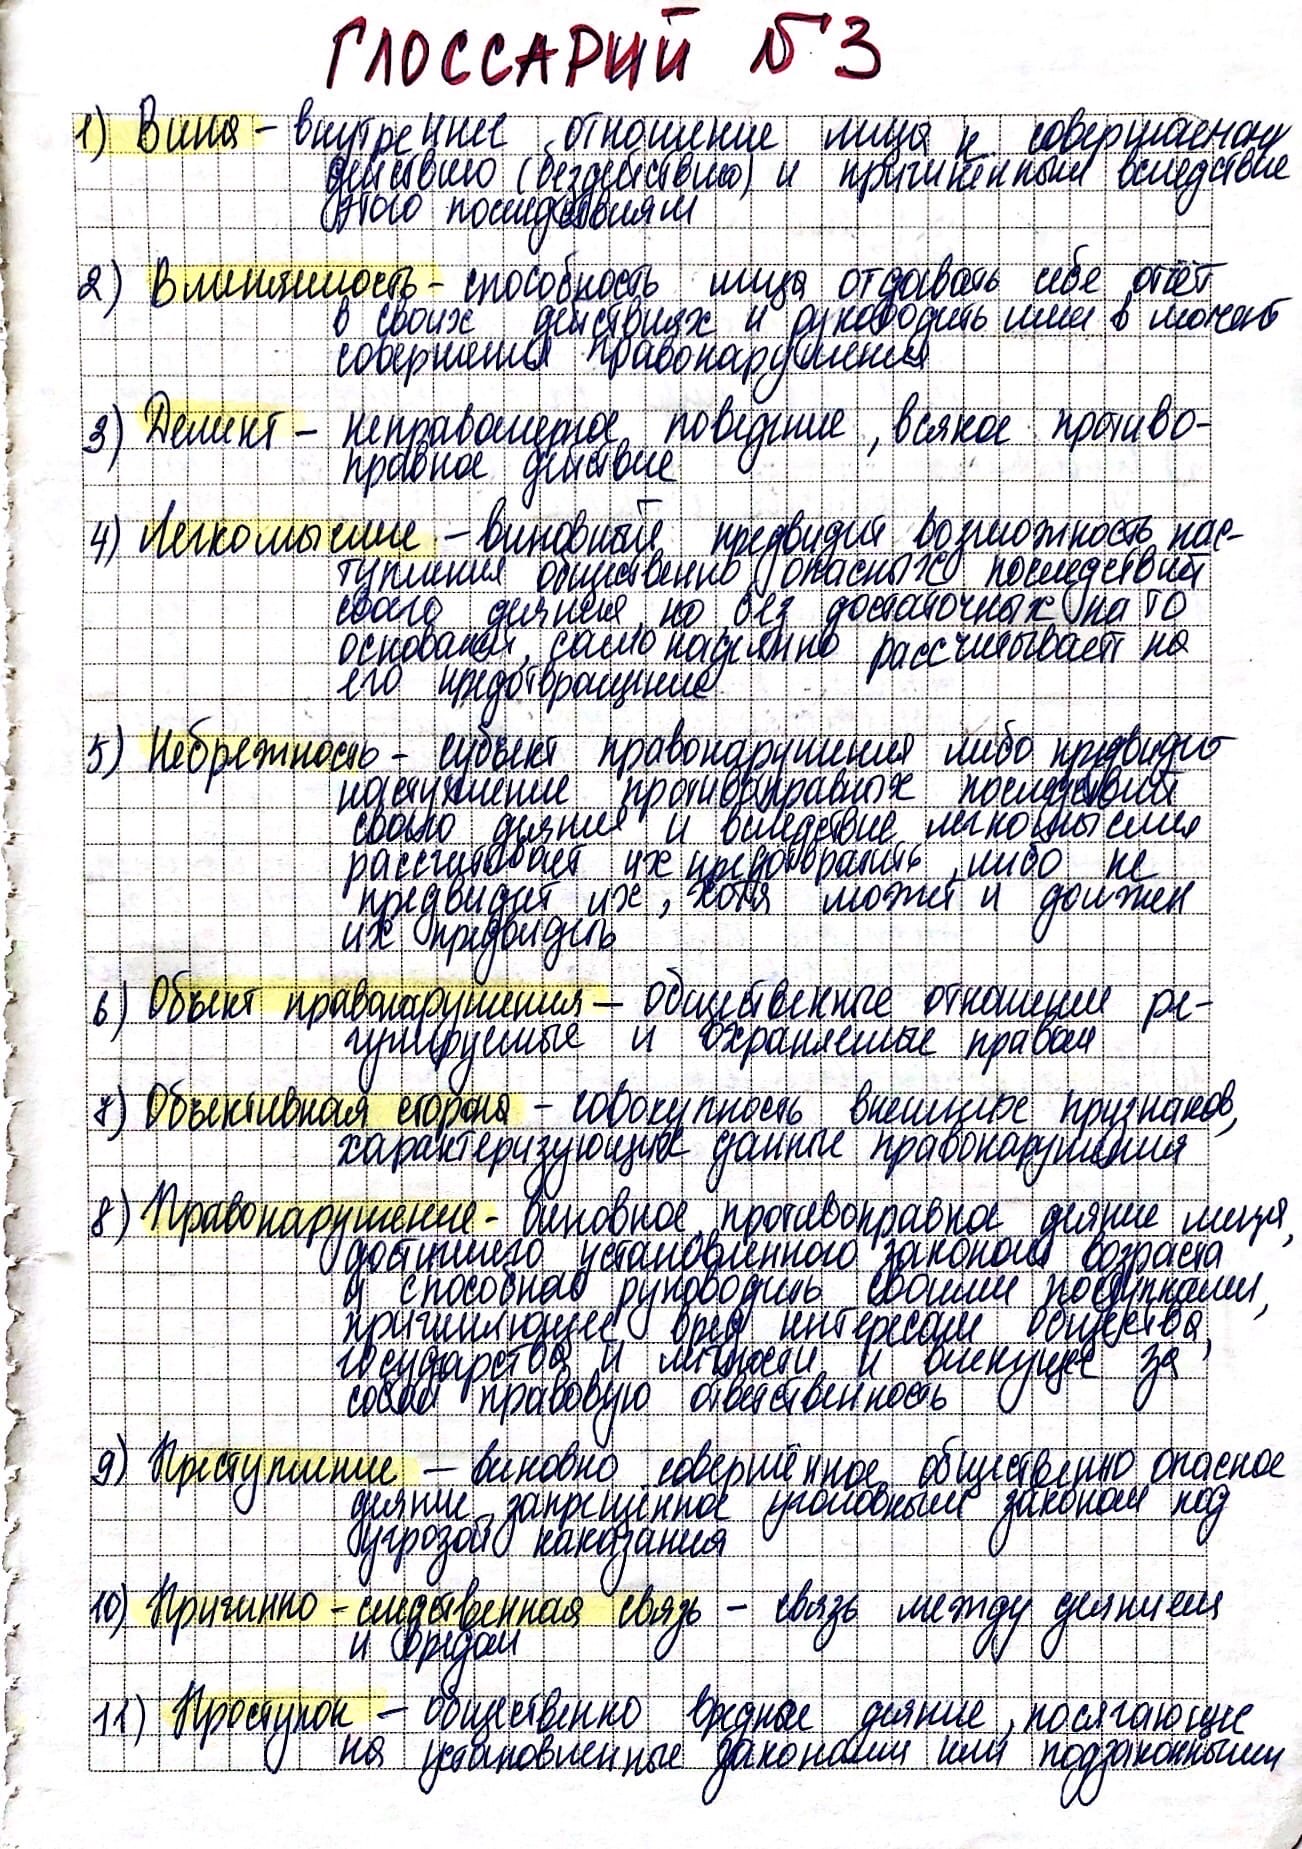 ГЛОССАРИЙ №3
1) Вина – внутреннее отношение лица к совершаемому
действию (бездействию) и причинённым вследствие
этого последствиям
2) Вменяемость – способность лица отдавать себе отчёт
в своих действиях и руководить ими в момент
совершения правонарушения
3) Деликт – неправомерное поведение, всякое противо-
правное действие
4) Легкомыслие – виновный предвидит возможность нас-
тупления общественно опасных последствий
своего деяния, но без достаточных на то
оснований, самонадеянно рассчитывает на
его предотвращение
5) Небрежность – субъект правонарушения либо предвидит
наступление противоправных последствий
своего деяния и вследствие легкомыслия
рассчитывает их предотвратить, либо не
предвидит их, хотя может и должен
их предвидеть
6) Объект правонарушения – общественные отношение ре-
гулируемые и охраняемые правом
7) Объективная сторона – совокупность внешних признаков,
характеризующих данные правонарушения
8) Правонарушение – виновное противоправное деяние лица,
достигшего установленного законом возраста
и способная руководить своими поступками,
причиняющее вред интересам общества,
государства и личности и влекущее за
собой правовую ответственность
9) Преступление – виновно совершённое общественно опасное
деяние, запрещённое уголовным законом под
угрозой наказания
10) Причинно – следственная связь – связь между деянием
и вредом
11) Проступок – общественно вредные деяние, посягающие
на установленные законами или подзаконными